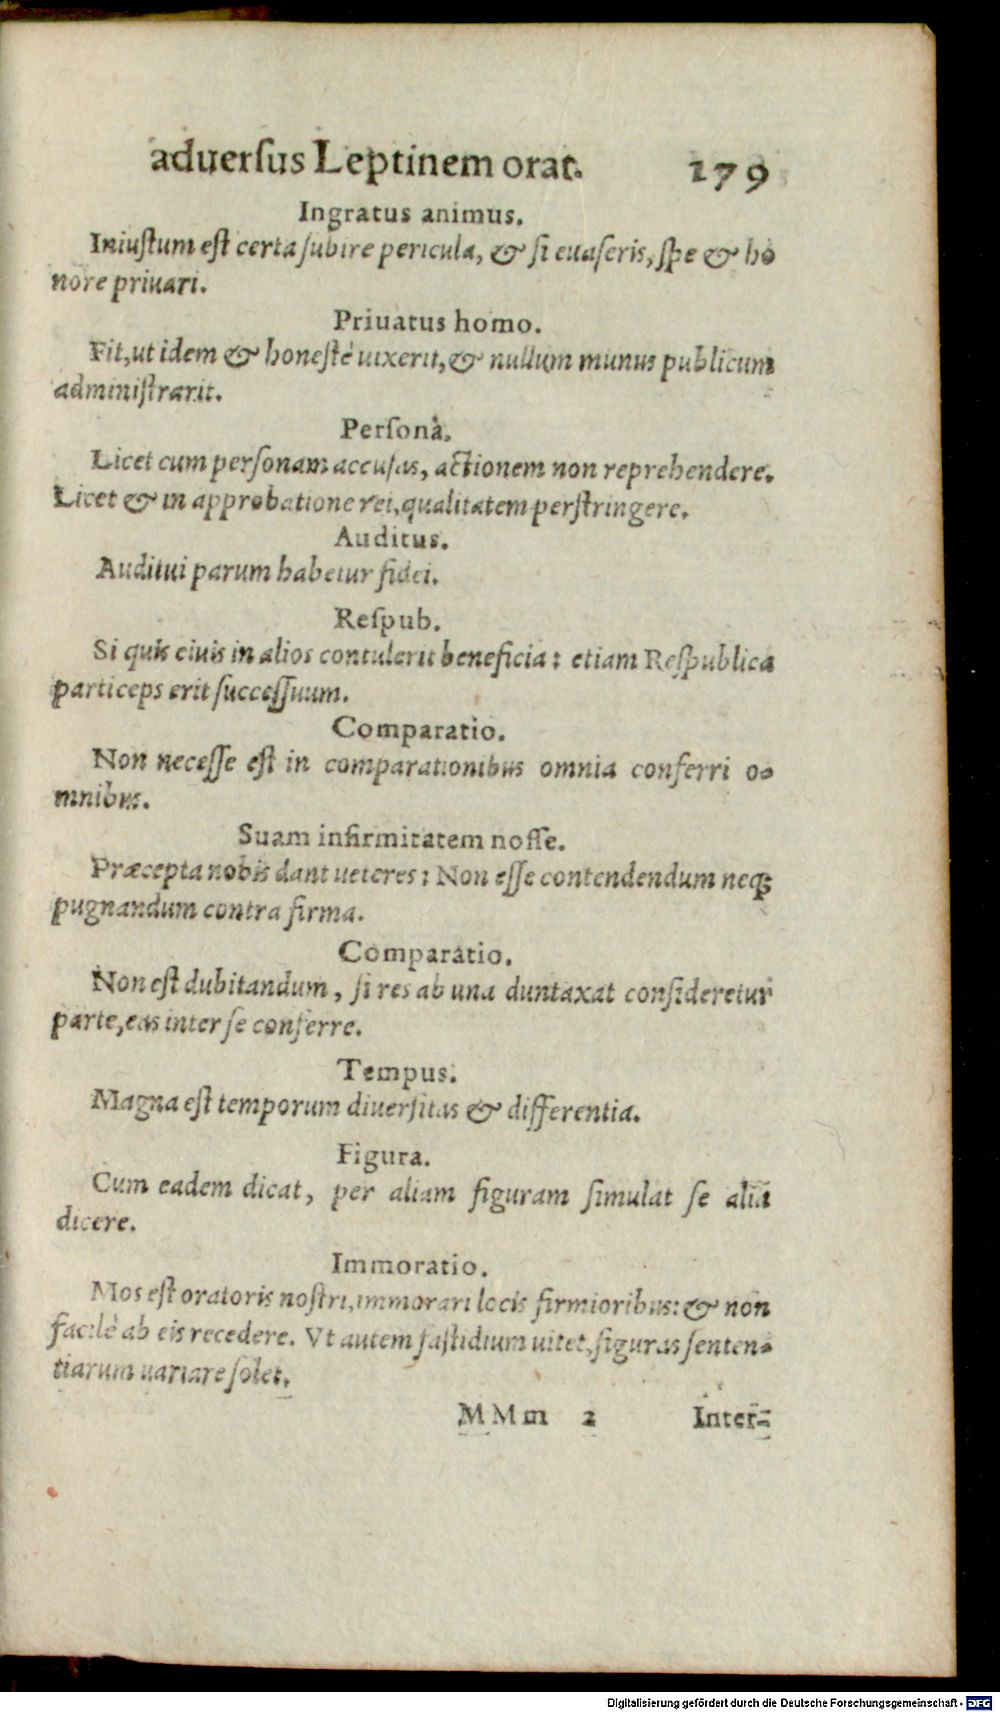 aduerſus Leptinem orat. 179
Ingratus animus.
Iniuſtum eſt certa ſubire pericula, & ſi euaſeris, ſpe & ho
nore priuari.
Priuatus homo.
Fit, ut idem & honeſtè uixerit, & nullum munus publicum
adminiſtrarit.
Perſona.
Licet cum perſonam accuſas, actionem non reprehendere.
Licet & in approbatione rei, qualitatem perſtringere.
Auditus.
Auditui parum habetur fidei.
Reſpub.
Si quis ciuis in alios contulerit beneficia: etiam Reſpublica
particeps erit ſucceſſuum.
Comparatio.
Non neceſſe eſt in comparationibus omnia conferri o-
mnibus.
Suam infirmitatem noſſe.
Præcepta nobis dant ueteres: Non eſſe contendendum neqꝫ
pugnandum contra firma.
Comparatio.
Non eſt dubitandum, ſi res ab una duntaxat conſideretur
parte, eas inter ſe conferre.
Tempus.
Magna eſt temporum diuerſitas & differentia.
Figura.
Cum eadem dicat, per aliam figuram ſimulat ſe aliā
dicere.
Immoratio.
Mos eſt oratoris noſtri, immorari locis firmioribus: & non
facilè ab eis recedere. Vt autem faſtidium uitet, figuras ſenten-
tiarum uariare ſolet.
MMm 2 Inter-
Digitalisierung gefördert durch die Deutsche Forschungsgemeinschaft - DFG